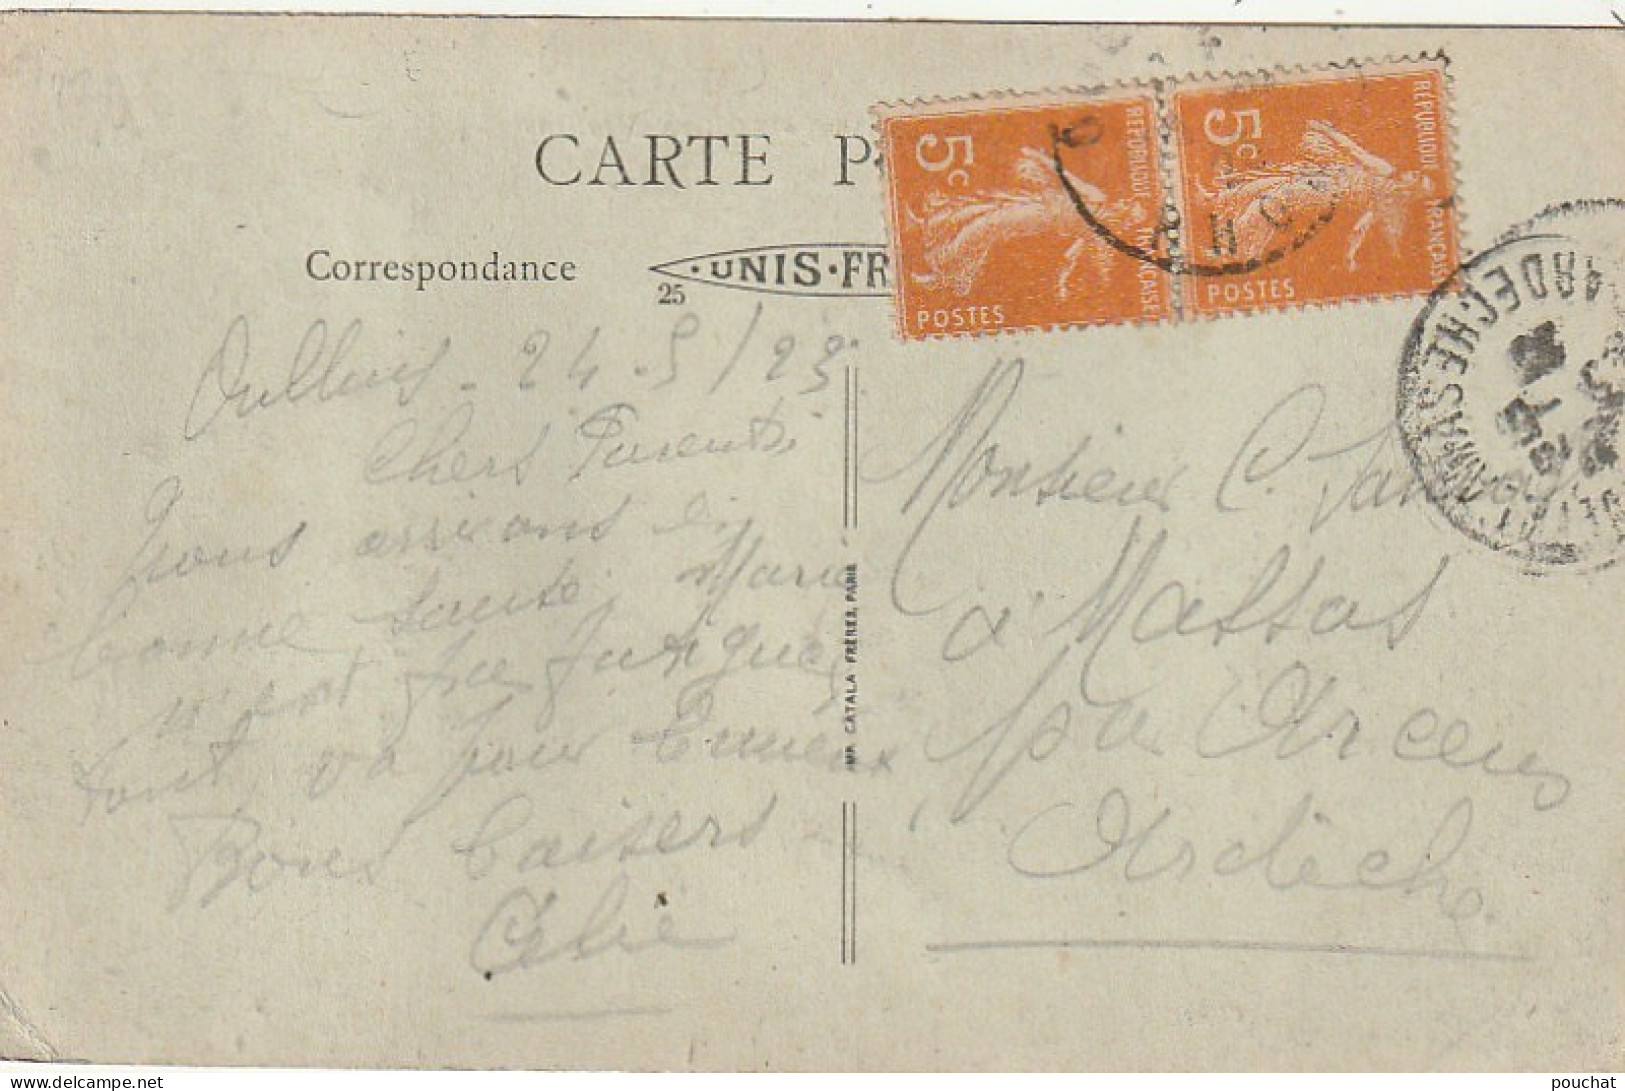 CARTE P
Correspondance
UNIS·FR
25
5c
RÉPUBLIQUE FRANÇAISE
POSTES
5c
RÉPUBLIQUE FRANÇAISE
POSTES
ARDECHE
LAMASTRE
24 . 5 / 23
Chers Parents
Nous arrivons en
bonne santé Marie
n'est pas fatiguée
tout va pour
Bons baisers
Célie
IMP. CATALA FRÈRES, PARIS
Monsieur C.
à Massas
par Arcens
Ardèche.
delcampe.net
pouchat